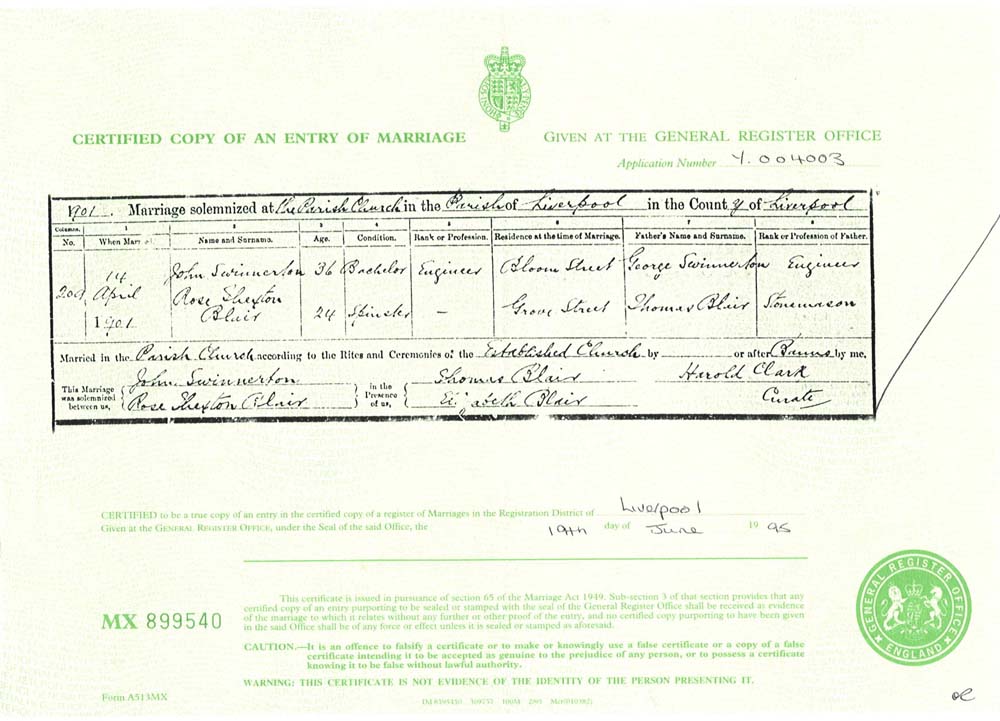 CERTIFIED COPY OF AN ENTRY OF MARRIAGE
GIVEN AT THE GENERAL REGISTER OFFICE
Application Number Y.004003
1901. Marriage solemnized at the Parish Church in the Parish of Liverpool in the County of Liverpool
Columns. 1 2 3 4 5 6 7 8
No. When Married. Name and Surname. Age. Condition. Rank or Profession. Residence at the time of Marriage. Father's Name and Surname. Rank or Profession of Father.
209 14 April 1901
John Swinnerton 36 Bachelor Engineer Bloom Street George Swinnerton Engineer
Rose Blair 24 Spinster — Grove Street Thomas Blair Stonemason
Married in the Parish Church according to the Rites and Ceremonies of the Established Church by or after Banns by me,
This Marriage was solemnized between us,
John Swinnerton
Rose Blair
in the Presence of us,
Thomas Blair
Blair
Harold Clark
Curate
CERTIFIED to be a true copy of an entry in the certified copy of a register of Marriages in the Registration District of Liverpool
Given at the GENERAL REGISTER OFFICE, under the Seal of the said Office, the 19th day of June 1995
MX 899540
This certificate is issued in pursuance of section 65 of the Marriage Act 1949. Sub-section 3 of that section provides that any
certified copy of an entry purporting to be sealed or stamped with the seal of the General Register Office shall be received as evidence
of the marriage to which it relates without any further or other proof of the entry, and no certified copy purporting to have been given
in the said Office shall be of any force or effect unless it is sealed or stamped as aforesaid.
CAUTION.—It is an offence to falsify a certificate or to make or knowingly use a false certificate or a copy of a false
certificate intending it to be accepted as genuine to the prejudice of any person, or to possess a certificate
knowing it to be false without lawful authority.
WARNING: THIS CERTIFICATE IS NOT EVIDENCE OF THE IDENTITY OF THE PERSON PRESENTING IT.
GENERAL REGISTER OFFICE
ENGLAND
Form A513MX